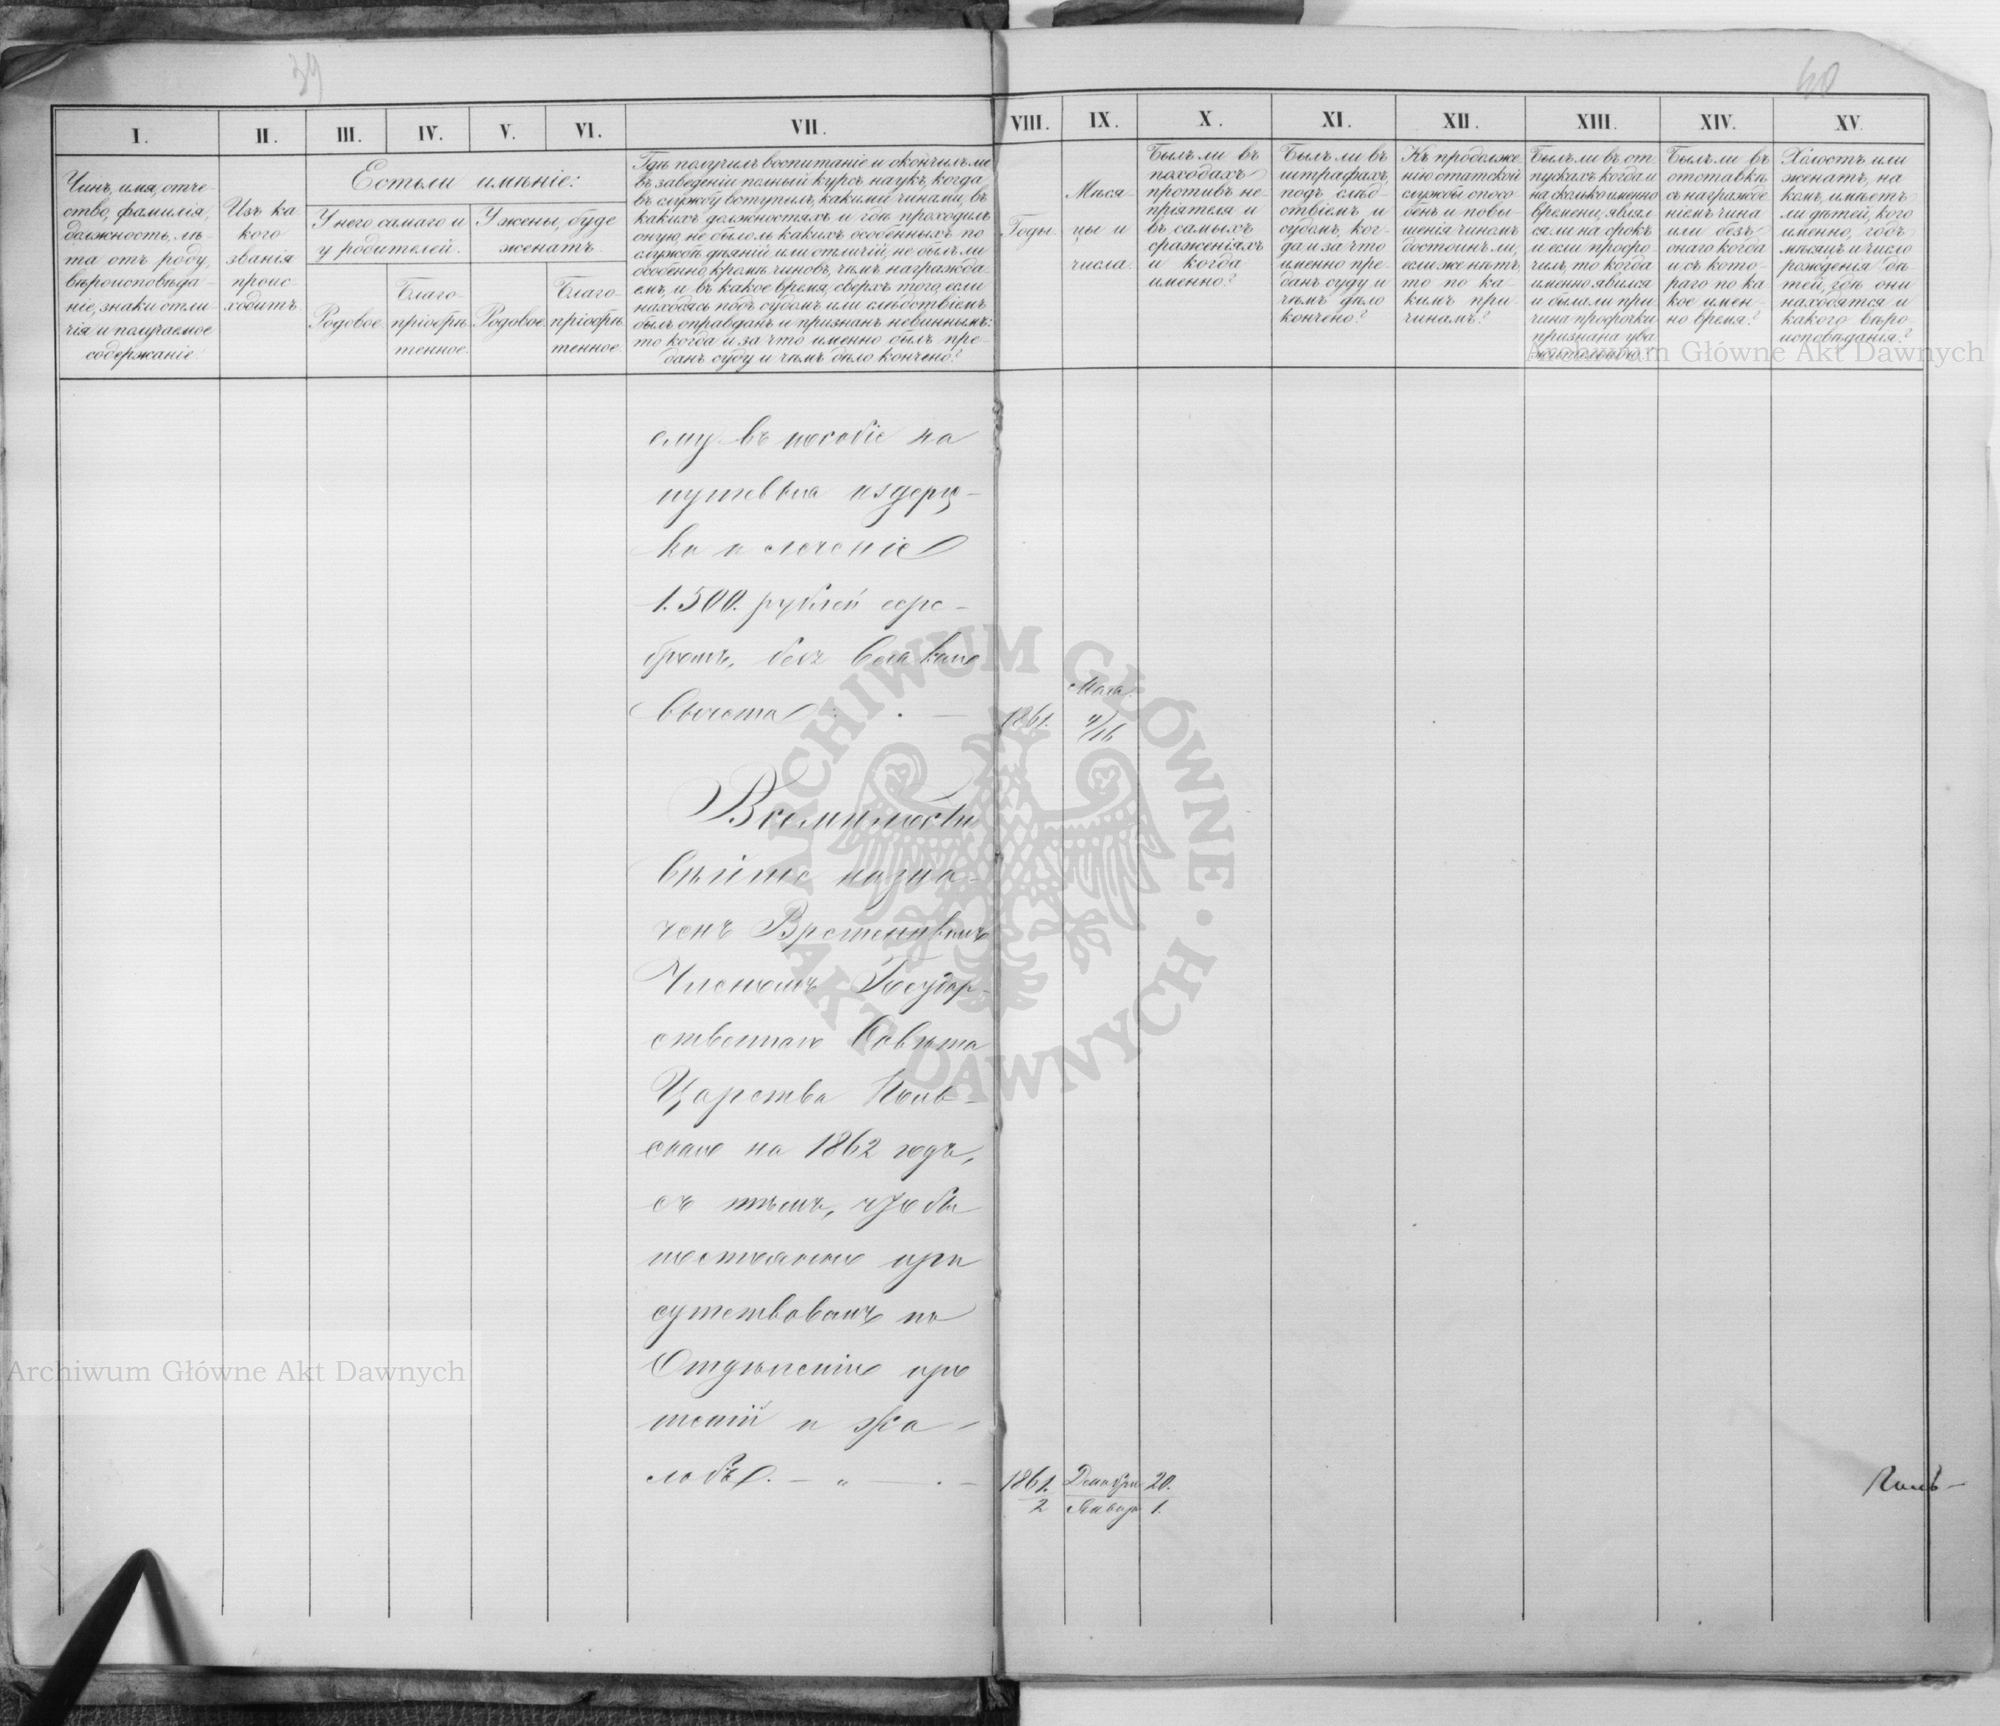 39
40
I.
II.
III.
IV.
V.
VI.
VII.
VIII.
IX.
X.
XI.
XII.
XIII.
XIV.
XV.
Чинъ, имя, отче-
ство, фамилія,
должность, лѣ-
та отъ роду,
вѣроисповѣда-
ніе, знаки отли-
чія и получаемое
содержаніе.
Изъ ка-
кого
званія
проис-
ходитъ.
Естьли имѣніе:
У него самаго и
у родителей.
У жены, буде
женатъ.
Родовое.
Благо-
пріобрѣ-
тенное.
Родовое.
Благо-
пріобрѣ-
тенное.
Гдѣ получилъ воспитаніе и окончилъ ли
въ заведеніи полный курсъ наукъ, когда
въ службу вступилъ, какими чинами, въ
какихъ должностяхъ и гдѣ проходилъ
оную, не было ль какихъ особенныхъ по
службѣ дѣяній или отличій, не былъ ли
особенно, кромѣ чиновъ, чѣмъ награжда-
емъ, и въ какое время, сверхъ того, если
находясь подъ судомъ или слѣдствіемъ
былъ оправданъ и признанъ невиннымъ:
то когда и за что именно былъ пре-
данъ суду и чѣмъ дѣло кончено?
Годы.
Мѣся-
цы и
числа.
Былъ ли въ
походахъ
противъ не-
пріятеля и
въ самыхъ
сраженіяхъ
и когда
именно?
Былъ ли въ
штрафахъ,
подъ слѣд-
ствіемъ и
судомъ, ког-
да и за что
именно пре-
данъ суду и
чѣмъ дѣло
кончено?
Къ продолже-
нію статской
службы спосо-
бенъ и повы-
шенія чиномъ
достоинъ ли,
если же нѣтъ,
то по ка-
кимъ при-
чинамъ?
Былъ ли въ от-
пускахъ когда и
на сколько именно
времени, являл-
ся ли на срокъ
и если просро-
чилъ, то когда
именно явился
и была ли при-
чина просрочки
признана ува-
жительною.
Былъ ли въ
отставкѣ
съ награжде-
ніемъ чина
или безъ
онаго когда
и съ кото-
раго по ка-
кое имен-
но время?
Холостъ или
женатъ, на
комъ, имѣетъ
ли дѣтей, кого
именно, годъ
мѣсяцъ и число
рожденія дѣ-
тей, гдѣ они
находятся и
какого вѣро-
исповѣданія?
Archiwum Główne Akt Dawnych
ему въ пособіе на
путевыя издерж-
ки и леченіе
1.500. рублей сере-
бромъ, безъ всякаго
вычета
1861.
Мая
4/16
Всемилости-
вѣйше назна-
ченъ Временнымъ
Членомъ Государ-
ственнаго Совѣта
Царства Поль-
скаго на 1862 годъ,
съ тѣмъ, чтобы
постоянно при
сутствовалъ въ
Отдѣленіи про
шеній и жа-
лобъ.
1861./2
Декабря 20.
Января 1.
Поль-
ARCHIWUM GŁÓWNE AKT DAWNYCH
Archiwum Główne Akt Dawnych